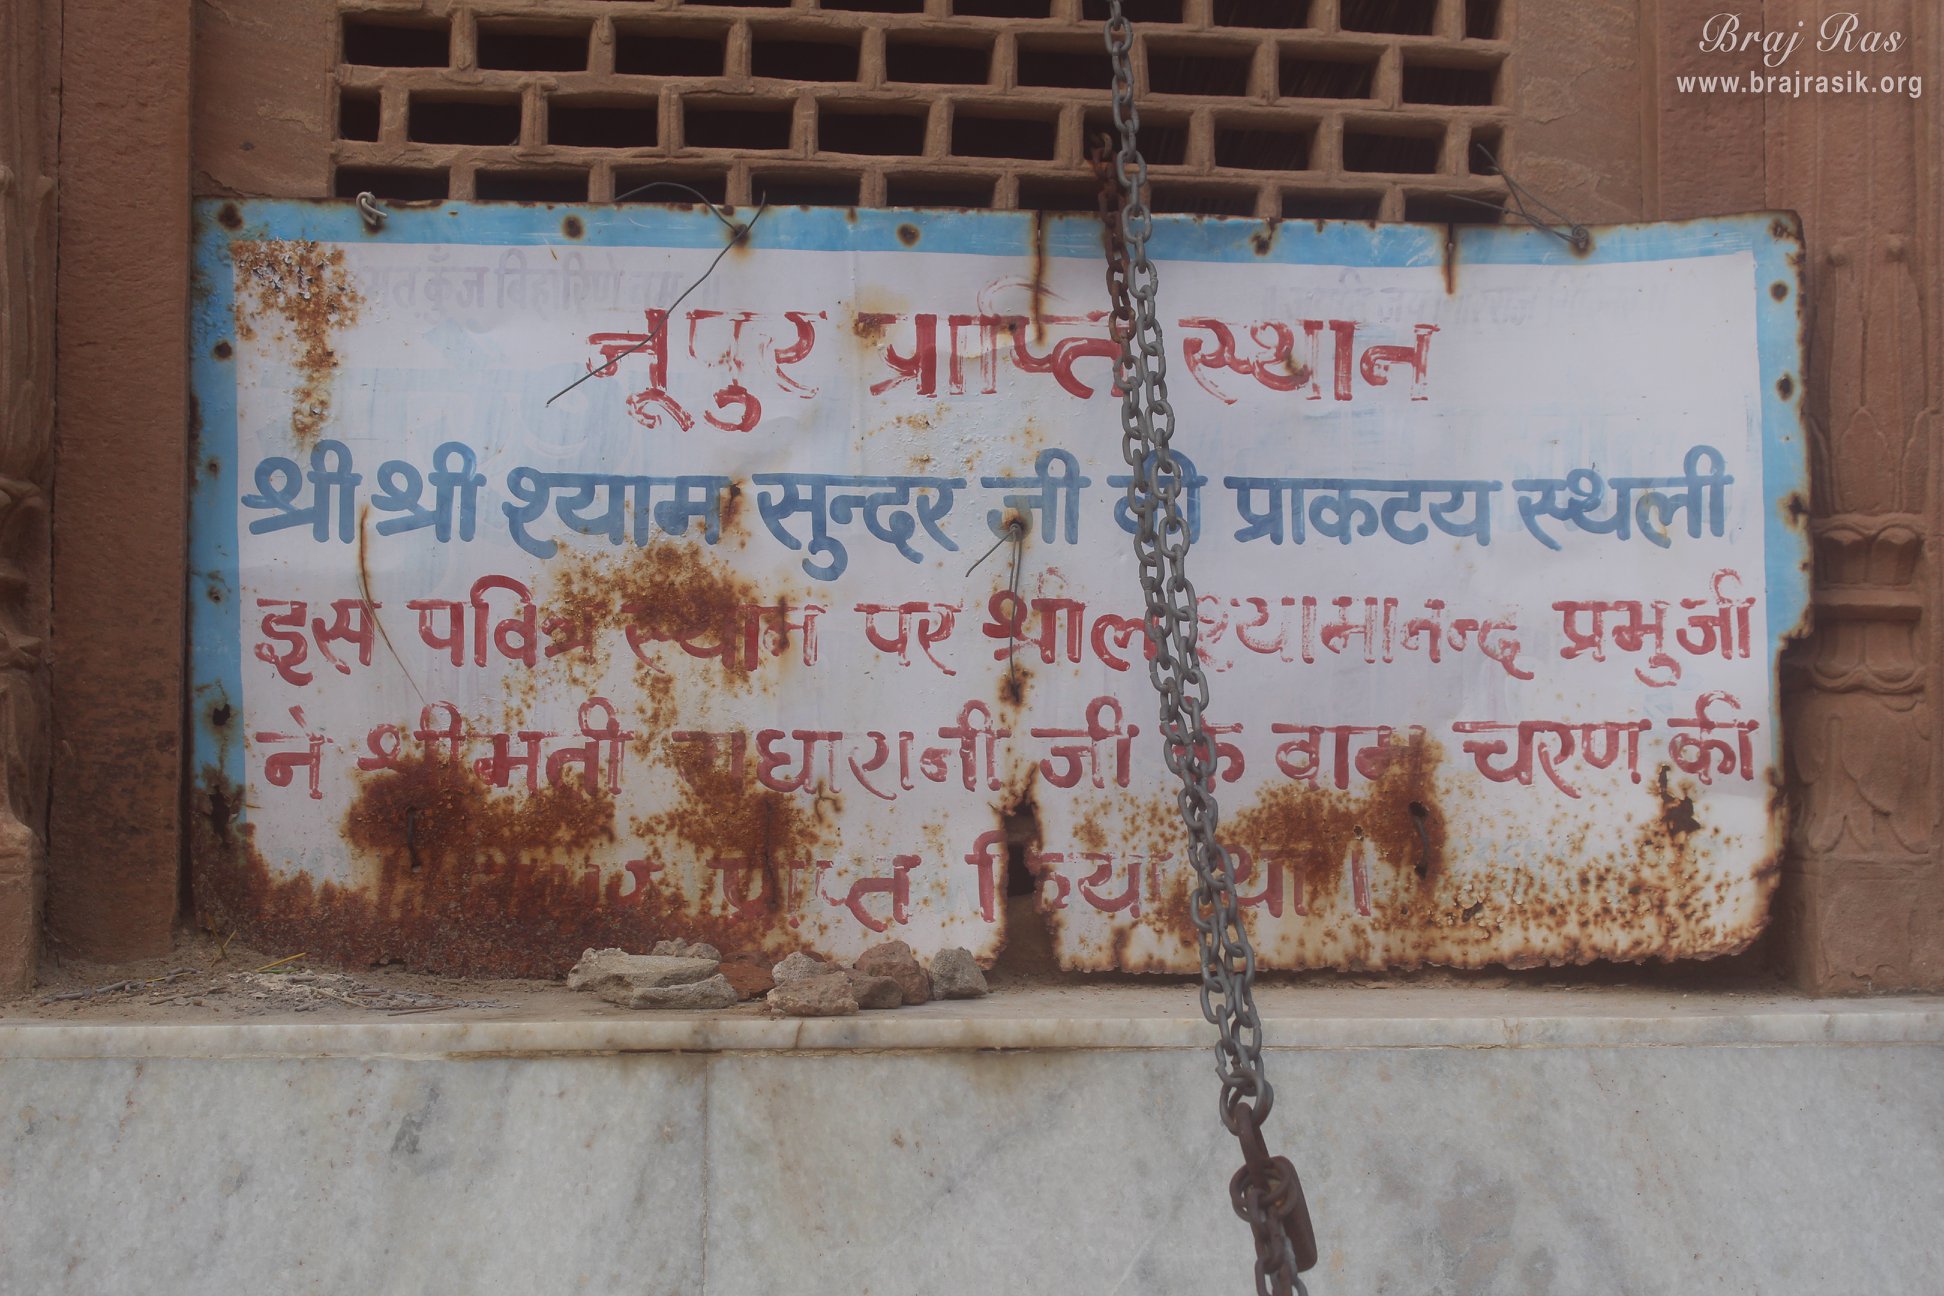 Braj Ras
www.brajrasik.org
कुँज बिहारिणे नमः
नूपुर प्राप्ति स्थान
श्री श्री श्याम सुन्दर जी की प्राकटय स्थली
इस पवित्र स्थान पर श्रील श्यामानन्द प्रभुजी
ने श्रीमती राधारानी जी के वाम चरण की
प्राप्त किया था।